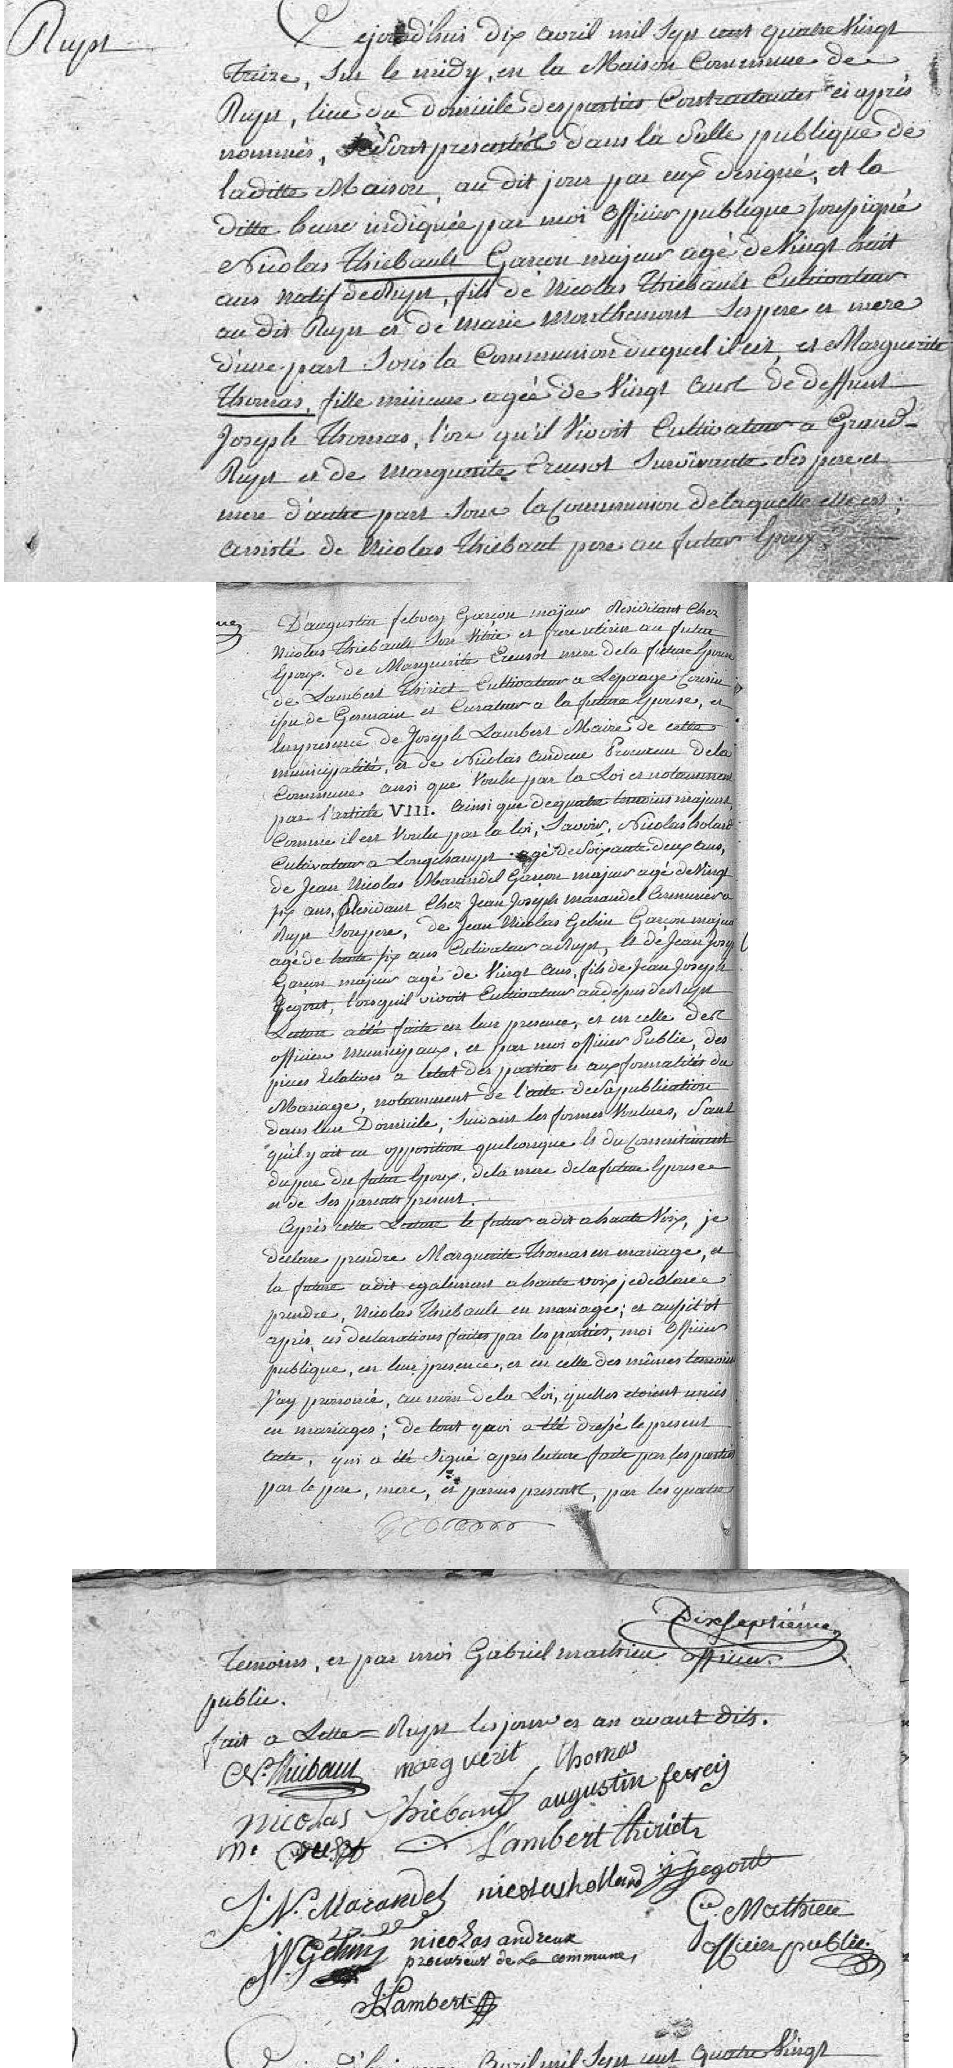 Rupt
Cejourd'hui dix avril mil sept cent quatre Vingt
treize, Sur le midy, en la Maison Commune de
Rupt, lieu du domicile des parties Contractantes ci après
nommés, Se Sont presentés dans la Salle publique de
laditte Maison, au dit jour par eux designé, et la
ditte heure indiquée par moi officier publique soussigné
Nicolas Thiebault Garçon majeur agé de Vingt huit
ans natif de Rupt, fils de Nicolas Thiebault Cultivateur
au dit Rupt et de marie Monthemont Ses pere et mere
d'une part Sous la Communion duquel il est, et Marguerite
Thomas, fille mineure agée de Vingt ans de deffunt
Joseph Thomas, lors qu'il Vivoit Cultivateur a Grand-
Rupt et de Marguerite Creusot Survivante Ses pere et
mere d'autre part Sous la Communion de laquelle elle est;
assisté de Nicolas Thiebaut pere au futur Epoux,
D'augustin febvay Garçon majeur Residant Chez
Nicolas Thiebault Son Vitric et frere uterin au futur
Epoux. de Marguerite Creusot mere de la future Epouse
de Lambert Thiriet Cultivateur a Lépange Cousin
issu de Germain et Curateur a la future Epouse, et
En presence de Joseph Lambert Maire de cette
municipalité, et de Nicolas andreux Procureur de la
Commune ainsi que Voulu par la Loi et notamment
par l'article VIII. ainsi que de quatre temoins majeurs,
Comme il est Voulu par la loi, Savoir, Nicolas holard
Cultivateur a Longchamps agé de Soixante deux ans,
de Jean Nicolas Marandel Garçon majeur agé de Vingt
six ans, Residant Chez Jean Joseph marandel a
Rupt Son pere, de Jean Nicolas Gehin Garçon majeur
agé de trente six ans Cultivateur a Rupt, Et de Jean Josep
Garçon majeur agé de Vingt ans, fils de Jean Joseph
Hegout, lorsquil vivoit Cultivateur au dessus de Rupt
Lecture a été faite en leur presence, et en celle des
officiers municipaux, et par moi officier Public, des
pieces Relatives a letat des parties et aux formalités du
Mariage, notamment de l'acte de Sa publication
dans leur Domicile, Suivant les formes Voulues, Sans
qu'il y ait eu opposition quelconque Et du Consentement
du pere du futur Epoux, de la mere de la future Epouse
et de Ses parents present.
Après cette Lecture le futur a dit a haute Voix, je
declare prendre Marguerite Thomas en mariage, et
la future a dit egalement a haute voix je declare
prendre, Nicolas Thiebault en mariage; et aussitôt
après ces declarations faites par les parties, moi officier
publique, en leur presence, et en celle des mêmes temoins
J'ay prononcé, au nom de la Loi, quelles etoient unies
en mariages; de tout quoi a été dressé le present
acte, qui a été Signé apres lecture faite par les parties
par le pere, mere, et parens presents, par les quatre
Dix Septiéme
Temoins, et par moi Gabriel mathieu officier
public.
fait a Rupt les jour et an avant dits.
N. Thiebaut marguerit thomas
nicolas Thiebaut augustin fevreis
m. creusot Lambert thiriet
J. N. Marandel nicolas hollard J Hegout
JN Gehin nicolas andreux G. Mathieu
procureur de la commune, officier public.
J Lambert
avril mil Sept cent quatre Vingt